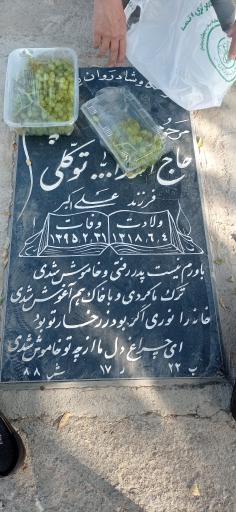 و شادروان
حاج
توکلی
فرزند علی اکبر
ولادت وفات
۱۳۱۸.۶.۴ ۱۳۹۵.۲.۳۱
باورم نیست پدر رفتی و خاموش شدی
ترک ما کردی و با خاک هم آغوش شدی
خانه را نوری اگر بود ز رخسار تو بود
ای چراغ دل ما از چه تو خاموش شدی
ب ۲۲ ر ۱۷ ش ۸۸